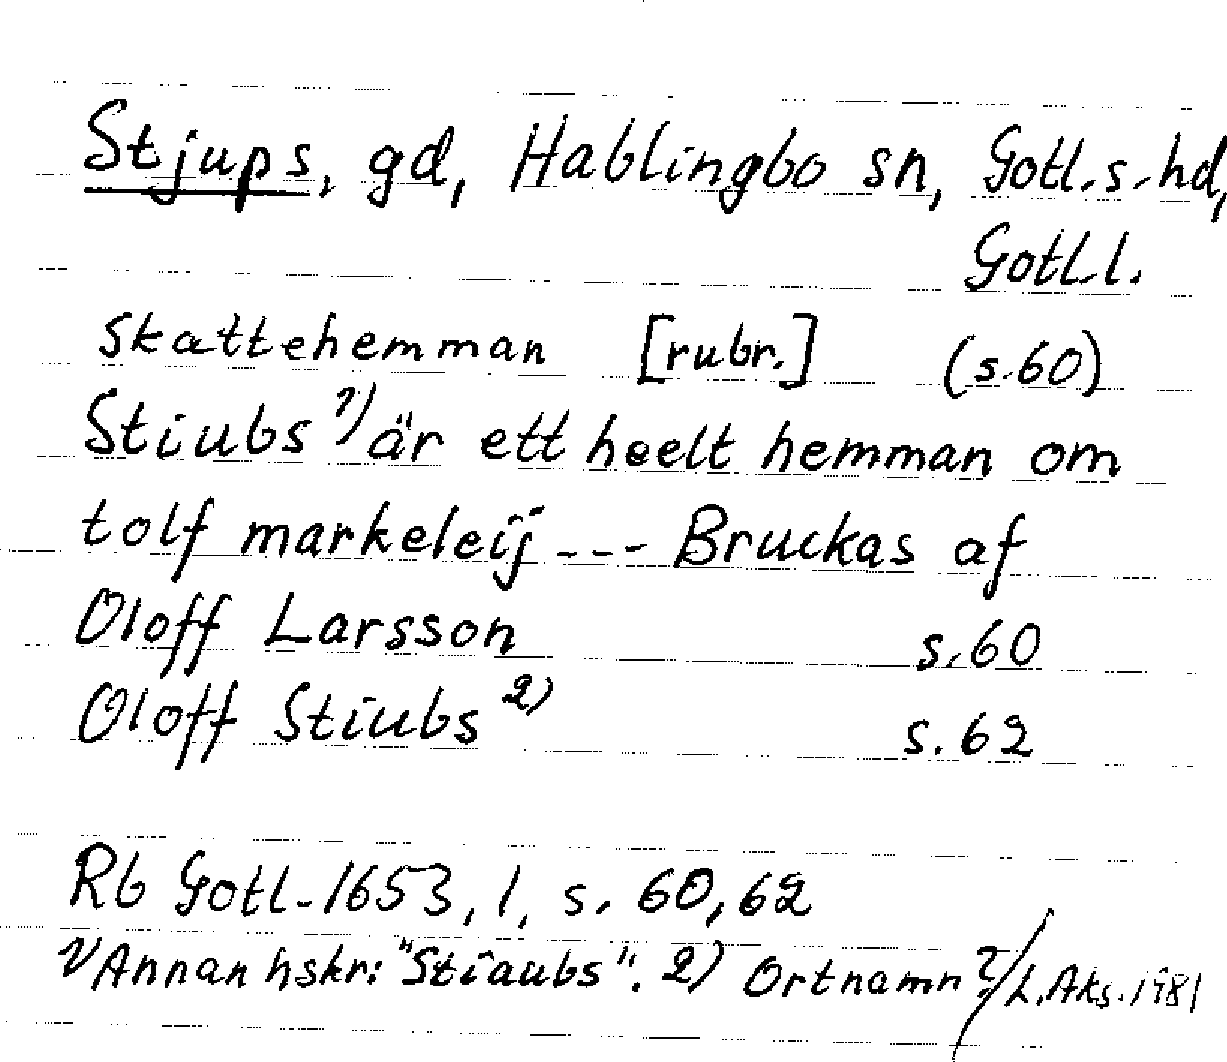 Stjups, gd, Hablingbo sn, Gotl.s.hd,
Gotl.l.
Skattehemman [rubr.] (s.60)
Stiubs 1) är ett heelt hemman om
tolf markeleij --- Bruckas af
Oloff Larsson s.60
Oloff Stiubs 2) s.62
Rb Gotl. 1653, 1, s. 60, 62
1) Annan hskr: "Stiaubs". 2) Ortnamn?/L.Aks.1981